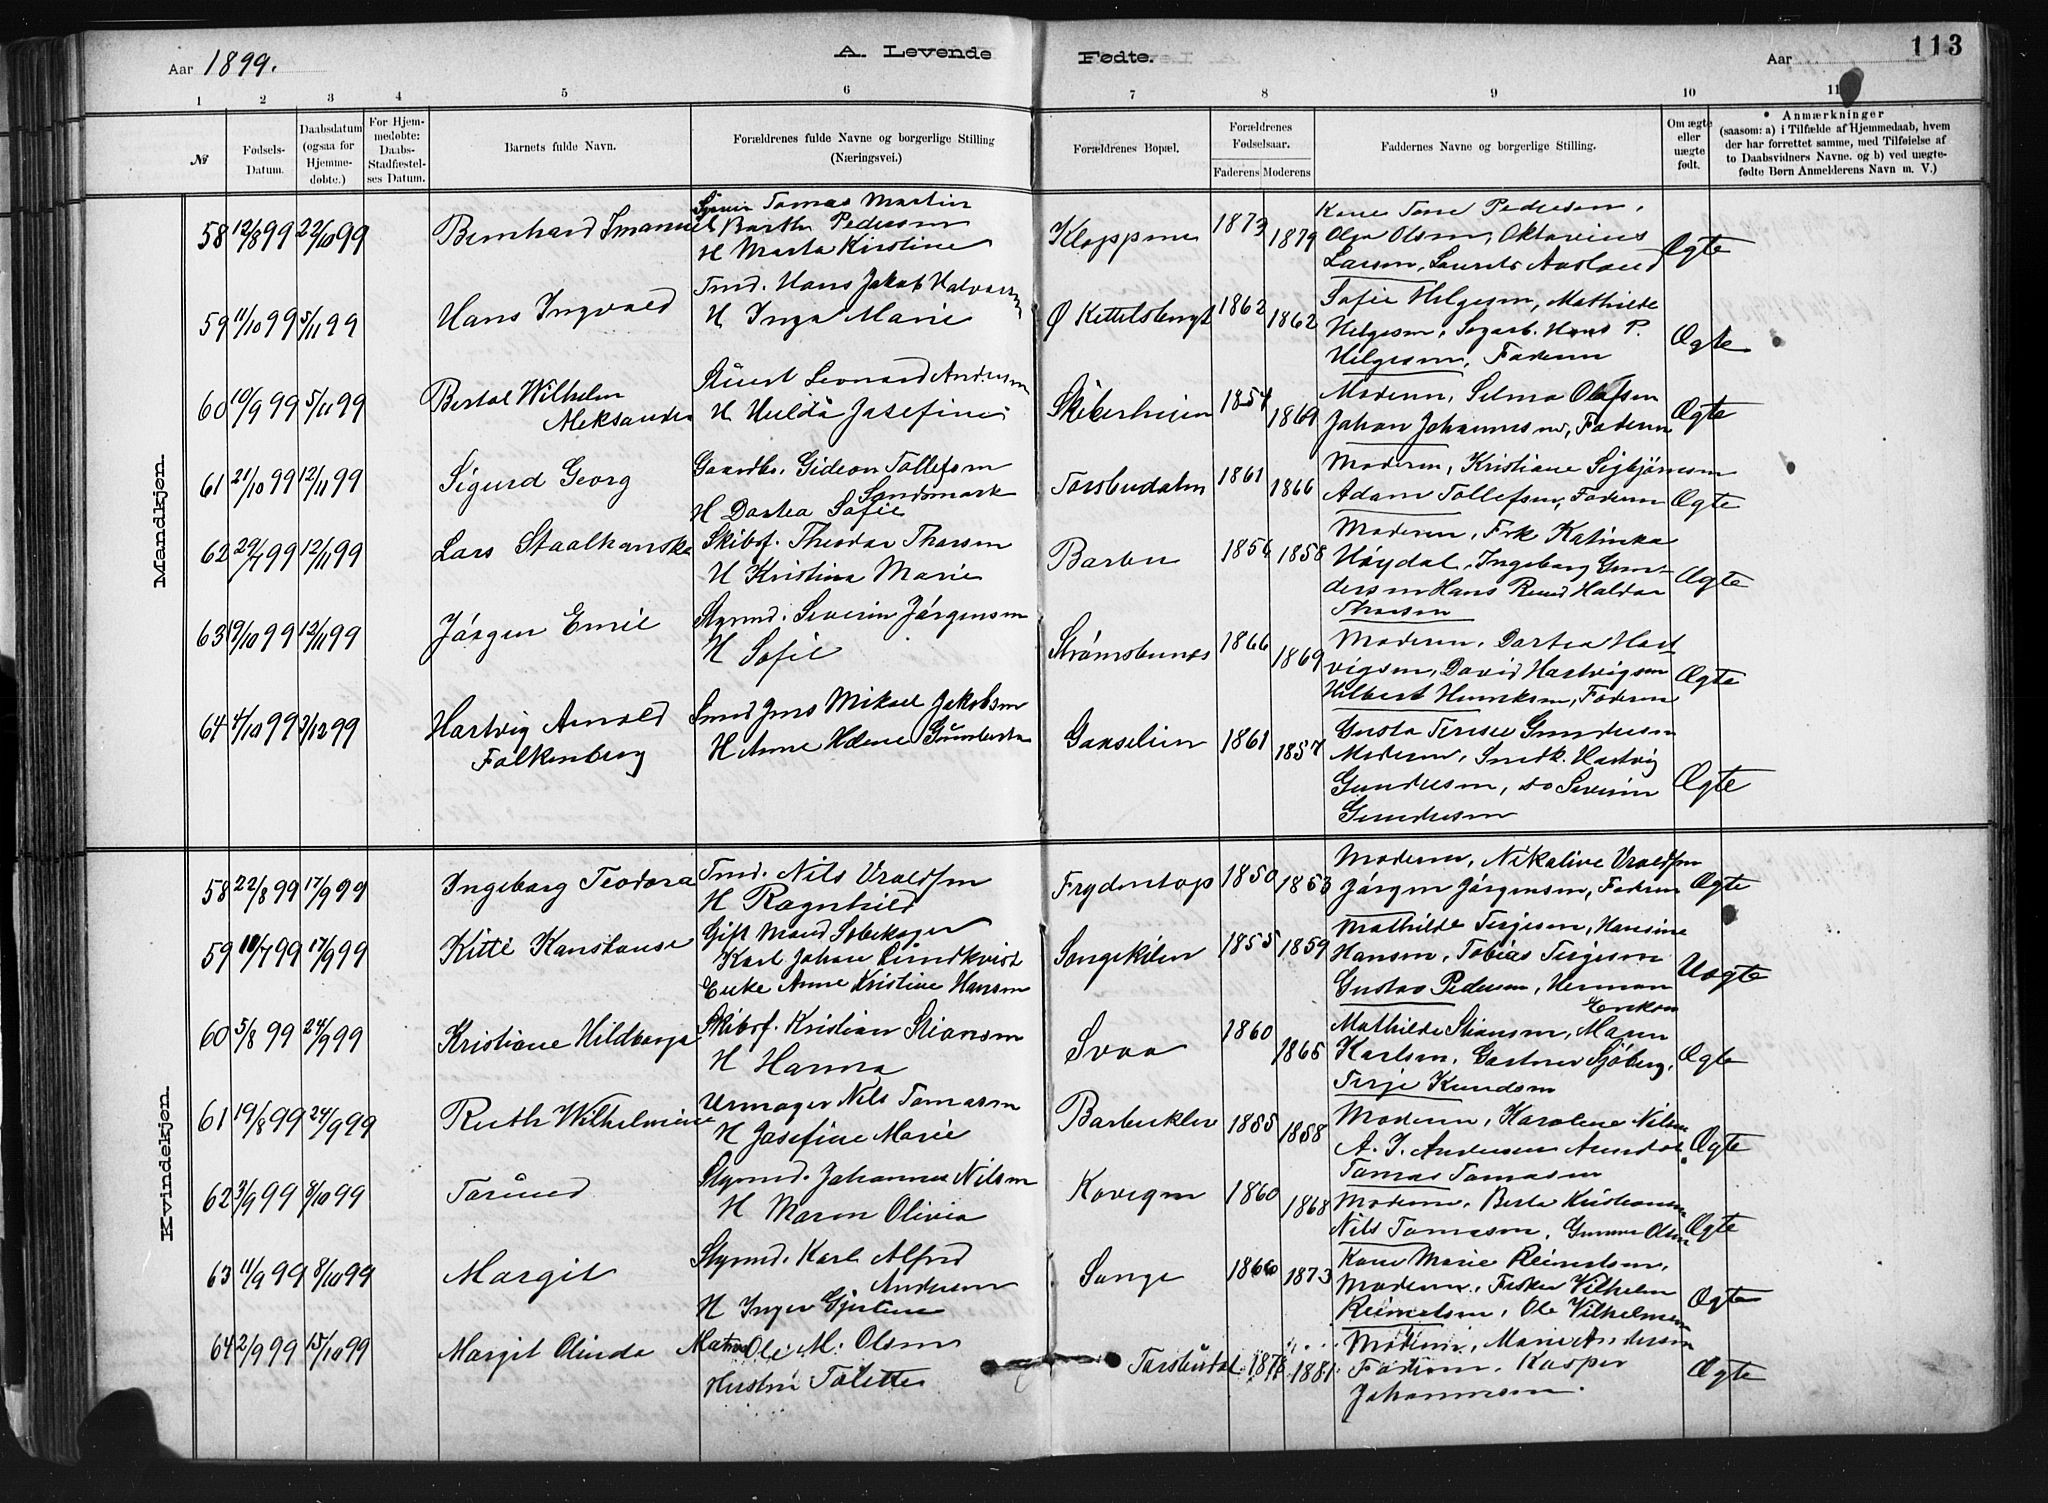 Aar 1899. A. Levende Fødte. Aar 113
1 2 3 4 5 6 7 8 9 10 11
№ Fødsels-Datum. Daabsdatum (ogsaa for Hjemmedøbte.) For Hjemmedøbte: Daabs-Stadfæstelses Datum. Barnets fulde Navn. Forældrenes fulde Navne og borgerlige Stilling (Næringsvei.) Forældrenes Bopæl. Forældrenes Fødselsaar. Faderens Moderens Faddernes Navne og borgerlige Stilling. Om ægte eller uægte født. Anmærkninger (saasom: a) i Tilfælde af Hjemmedaab, hvem der har forrettet samme, med Tilføielse af to Daabsvidners Navne. og b) ved uægtefødte Børn Anmelderens Navn m. V.)
Mandkjøn.
58 12/8 99 22/10 99 Bernhard Imanuel Tomas Martin Barth Pedersen H Marta Kirstine 1873 1879 Kone Tone Pedersen, Olga Olsen, Oktavius Larsen, Laurits Aasland Ægte
59 11/10 99 5/11 99 Hans Ingvald Tmd. Hans Jakob Halvorsen H Inga Marie Ø Kettelsbugt 1862 1862 Sofie Helgesen, Mathilde Helgesen, Hans P. Helgesen, Faderen Ægte
60 10/9 99 5/11 99 Bertol Wilhelm Aleksander Stuert Leonard Andersen H Hulda Josefine Skiberheien 1854 1869 Moderen, Selma Olafsen Johan Johannesen, Faderen Ægte
61 21/10 99 12/11 99 Sigurd Georg Gaardbr. Gideon Tollefsen Sandsmark H Dortea Sofie Torsbudalen 1861 1866 Moderen, Kristiane Sigbjørnsen Adam Tollefsen, Faderen Ægte
62 29/7 99 12/11 99 Lars Staalhanske Skibsf. Theodor Thorsen H Kristina Marie Barbu 1856 1858 Moderen, Frk Katinka Høydal, Ingeborg Gundersen Hans Haldor Thorsen Ægte
63 19/10 99 12/11 99 Jørgen Emil Styrmd. Severin Jørgensen H Sofie Strømsbunes 1866 1869 Moderen, Dortea Hartvigsen, David Hartvigsen Hilbert Henriksen, Faderen Ægte
64 4/10 99 3/12 99 Hartvig Arnold Falkenberg Smed Jens Mikael Jakobsen H Anne Helene Gaaselien 1861 1857 Gusta Terese Gundersen Moderen, Smdk. Hartvig Gundersen, do Severin Gundersen Ægte
Kvindekjøn.
58 22/8 99 17/9 99 Ingeborg Teodora Tmd. Nils Uvoldsen H Ragnhild Frydentop 1850 1853 Moderen, Nikoline Uvoldsen Jørgen Jørgensen, Faderen Ægte
59 11/7 99 17/9 99 Kitte Konstanse Gift Mand Karl Johan Lindkvist Enke Anne Kristine Hansen Songekilen 1855 1859 Mathilde Terjesen, Hansine Hansen, Tobias Terjesen Gustav Pedersen, Herman Eriksen Uægte
60 5/8 99 24/9 99 Kristiane Hildborge Skibsf. Kristian Stiansen H Hanna Svaa 1860 1865 Mathilde Stiansen, Maren Karlsen, Gartner Sjöberg, Terje Knudsen Ægte
61 19/8 99 24/9 99 Ruth Wilhelmine Urmager Nils Tomasen H Josefine Marie Barbuklev 1855 1858 Moderen, Karoline Nilsen A. J. Andersen Arendal Tomas Tomasen Ægte
62 3/9 99 8/10 99 Torund Styrmd. Johannes Nilsen H Maren Olivia Kovigen 1860 1868 Moderen, Berte Kristiansen Nils Tomasen, Gunnar Olsen Ægte
63 11/9 99 8/10 99 Margit Styrmd. Karl Alfred Andersen H Inger Gjertine Songe 1866 1873 Kone Marie Reinertsen, Moderen, Fisker Vilhelm Reinertsen, Ole Vilhelmsen Ægte
64 2/9 99 15/10 99 Margit Olinda Matros Ole M. Olsen Hustru Tolette Torsbudal 1878 1881 Moderen, Marie Andersen Faderen, Kasper Johannesen. Ægte